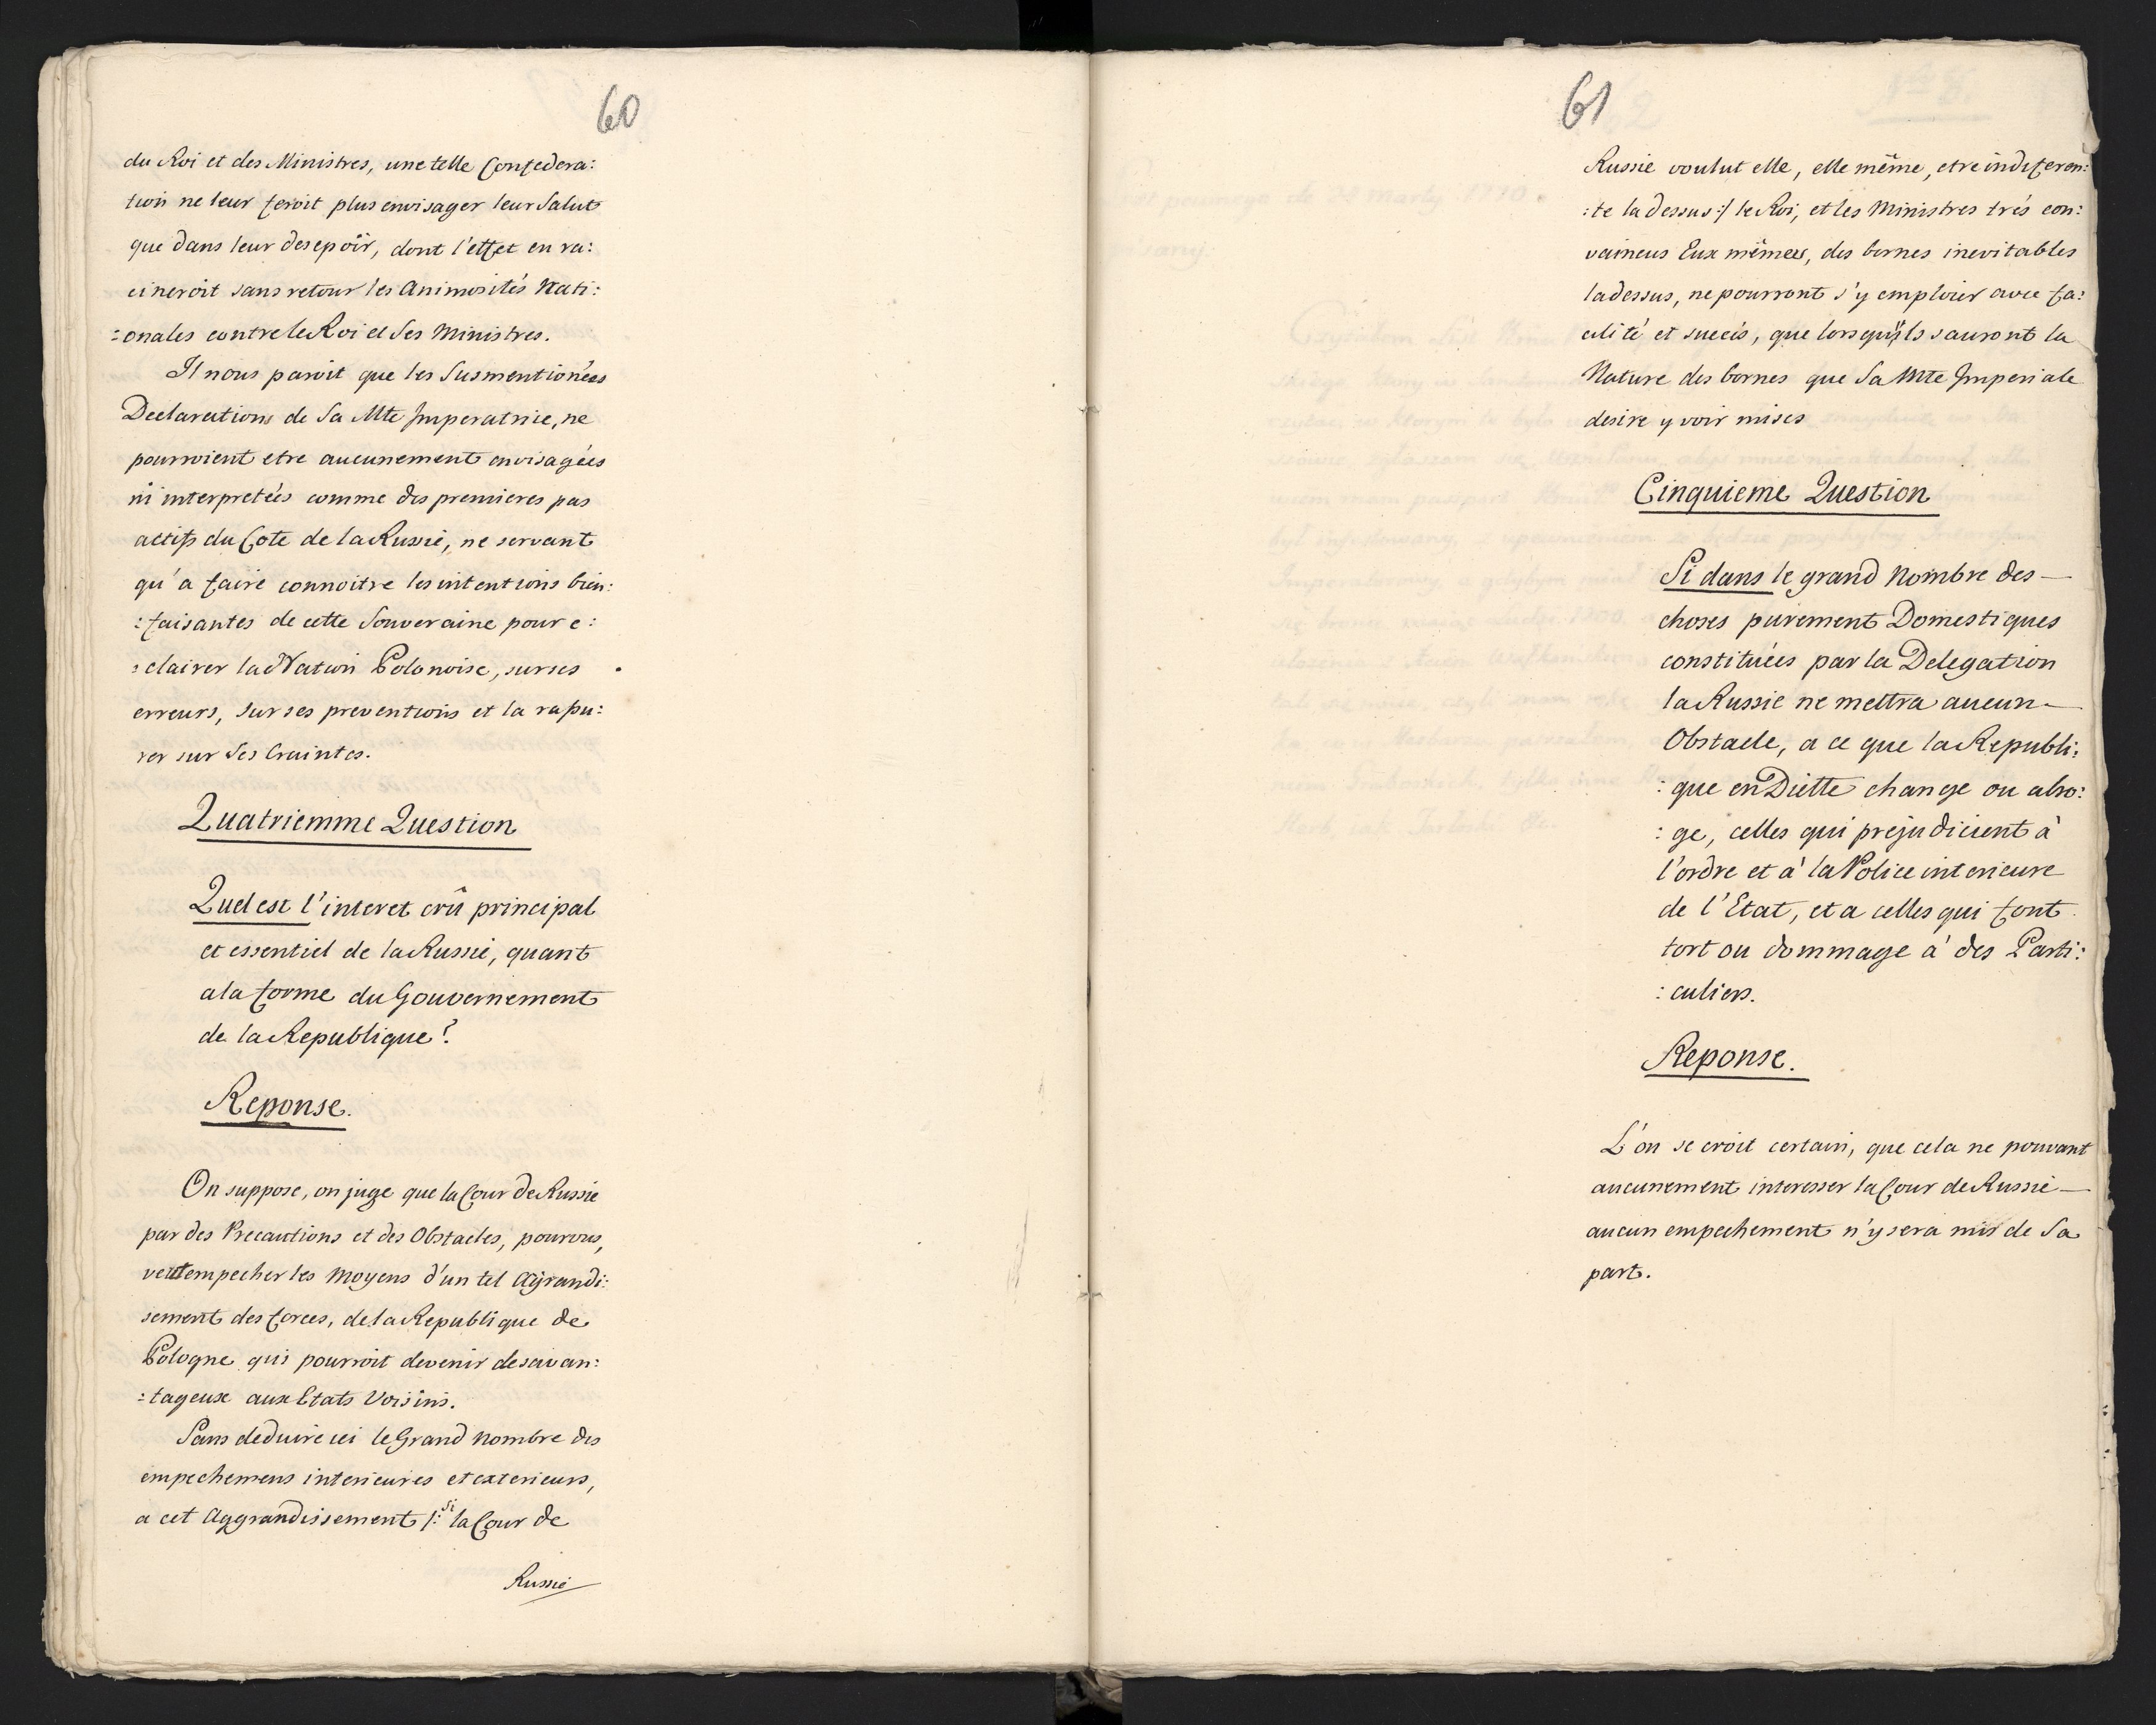 60
du Roi et des Ministres, une telle Confedera:
tion ne leur feroit plus envisager leur Salut
que dans leur desepoir, dont l'effet en ra:
cineroit sans retour les Animosités Nati:
:onales contre le Roi et Ses Ministres.
Il nous paroit que les Susmentionées
Declarations de Sa Mte Imperatrice, ne
pourroient etre aucunement envisagées
ni interpretées comme des premieres pas
actifs du Cote de la Russie, ne servant
qu'a faire connoitre les intentions bien:
:faisantes de cette Souveraine pour e:
:clairer la Nation Polonoise, sur ses
erreurs, sur ses preventions et la rassu:
rer sur Ses Craintes.
Quatriemme Question
Quel est l'interet crû principal
et essentiel de la Russie, quant
a la forme du Gouvernement
de la Republique?
Reponse.
On suppose, on juge que la Cour de Russie
par des Precautions et des Obstacles, pourvus,
veut empecher les Moyens d'un tel Agrandi:
sement des forces, de la Republique de
Pologne qui pourroit devenir desavan:
:tageuse aux Etats Voisins.
Sans deduire ici le Grand Nombre des
empechemens interieures et exterieurs,
a cet Aggrandissement /: si la Cour de
Russie
61
Russie voulut elle, elle même, etre indiferen:
:te la dessus :/ le Roi, et les Ministres trés con:
vaincus Eux mêmes, des bornes inevitables
la dessus, ne pourront s'y emploier avec fa:
cilité et succés, que lorsqu'ils sauront la
Nature des bornes que Sa Mte Imperiale
desire y voir mises
Cinquieme Question
Si dans le grand Nombre des —
choses purement Domestiques
constituées par la Delegation
la Russie ne mettra aucun —
Obstacle, a ce que la Republi:
:que en Diette change ou abro:
:ge, celles qui prejudicient à
l'ordre et à la Police interieure
de l'Etat, et a celles qui font
tort ou dommage à des Parti:
:culiers.
Reponse.
L'on se croit certain, que cela ne pouvant
aucunement interesser la Cour de Russie —
aucun empechement n'y sera mis de Sa
part.